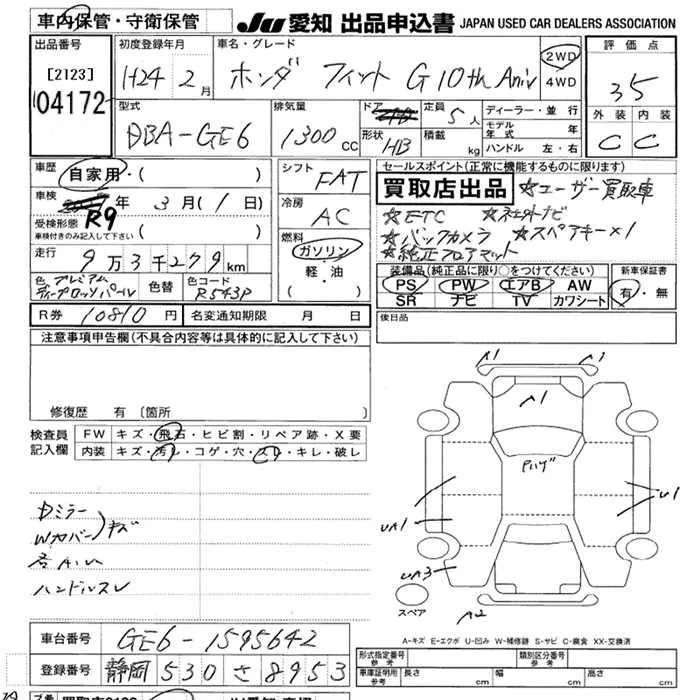 車内保管・守衛保管
JU 愛知 出品申込書 JAPAN USED CAR DEALERS ASSOCIATION
出品番号 初度登録年月 車名・グレード 評価点
[2123] H24 2月 ホンダ フィット G 10th Aniv 2WD 4WD 35
04172
型式 排気量 ドア 定員 5人 ディーラー・並行 外装 内装
DBA-GE6 1300cc 形状 HB 積載 kg モデル年式 年 C C
ハンドル 左・右
車歴 自家用・( ) シフト FAT セールスポイント(正常に機能するものに限ります)
車検 R9年 3月(1日) 冷房 AC 買取店出品 ☆ユーザー買取車
受検形態 ( )
車検付きのみ記入して下さい
☆ETC ☆社外ナビ
☆バックカメラ ☆スペアキー×1
☆純正フロアマット
走行 9万3千279km 燃料 ガソリン・軽・油・( )
装備品(純正品に限り○をつけてください) 新車保証書
色 プレミアムディープロッソパール 色替 色コード R543P
PS PW エアB AW 有・無
SR ナビ TV カワシート
R券 10810円 名変通知期限 月 日 後日品
注意事項申告欄(不具合内容等は具体的に記入して下さい)
修復歴 有 [箇所
検査員記入欄 FW キズ・飛石・ヒビ割・リペア跡・X要
内装 キズ・汚レ・コゲ・穴・スレ・キレ・破レ
A1 A1
A1
Pハゲ
Dミラー
Wカバー キズ
UA1 U1
各A.U
UA3
ハンドルスレ
スペア A2
A-キズ E-エクボ U-凹み W-補修跡 S-サビ C-腐食 XX-交換済
車台番号 GE6-1595642
登録番号 静岡 530 さ 8953
形式指定番号 参考 類別区分番号 参考
車庫証明用 参考 長さ cm 幅 cm 高さ cm